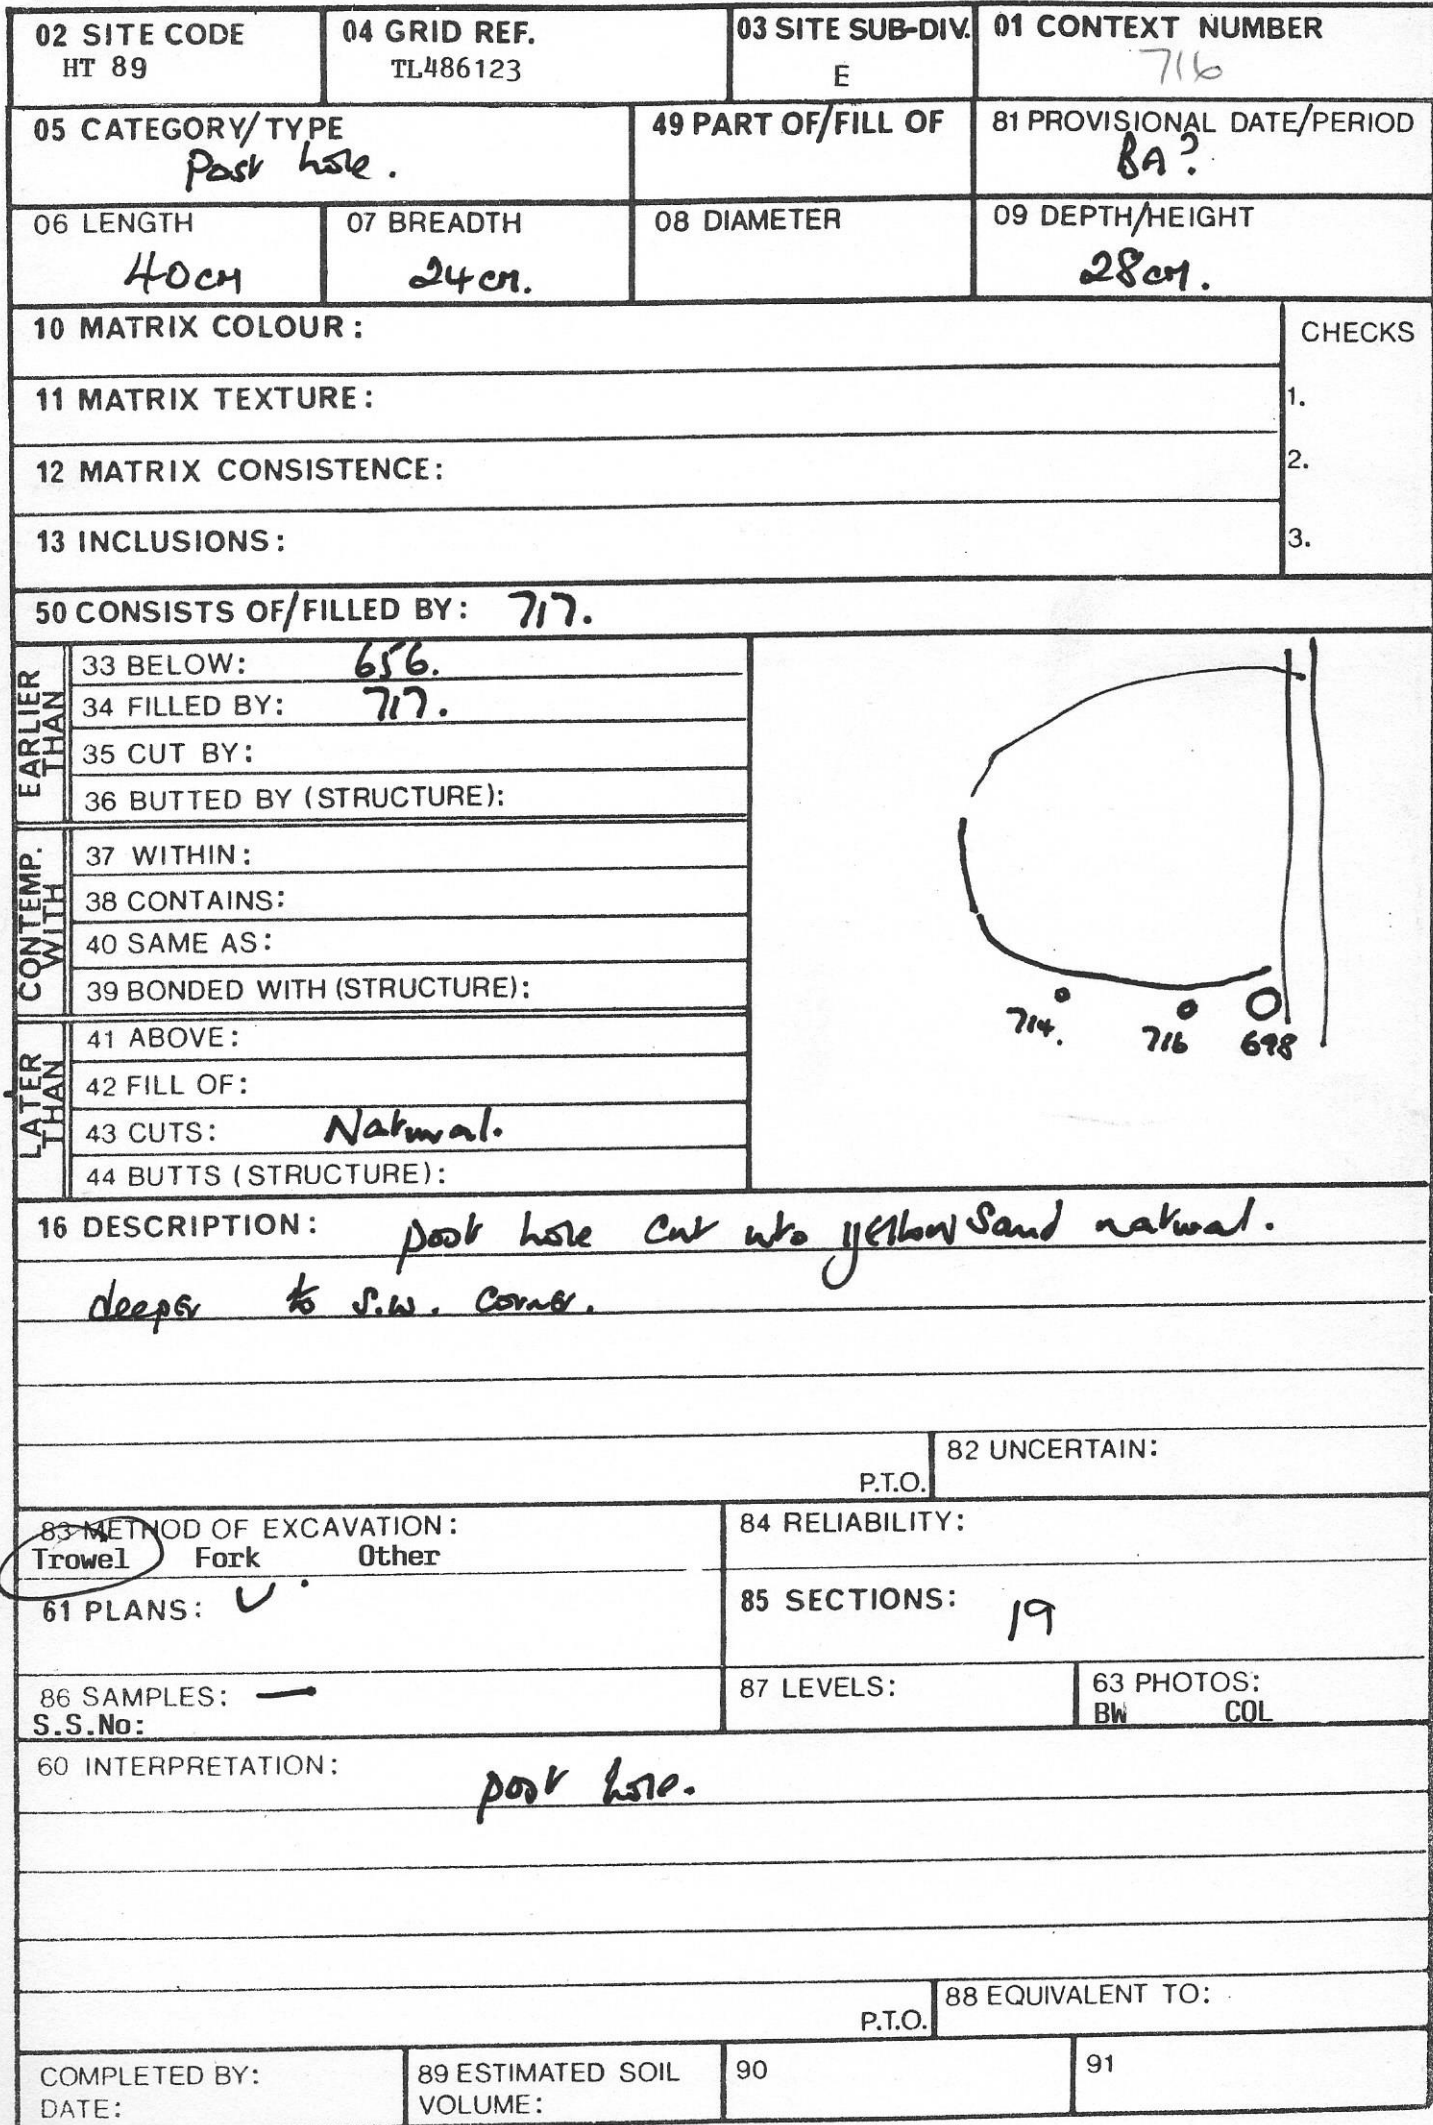 02 SITE CODE 04 GRID REF. 03 SITE SUB-DIV. 01 CONTEXT NUMBER
HT 89 TL486123 E 716
05 CATEGORY/TYPE 49 PART OF/FILL OF 81 PROVISIONAL DATE/PERIOD
Post hole. BA?
06 LENGTH 07 BREADTH 08 DIAMETER 09 DEPTH/HEIGHT
40cm 24cm. 28cm.
10 MATRIX COLOUR: CHECKS
11 MATRIX TEXTURE: 1.
12 MATRIX CONSISTENCE: 2.
13 INCLUSIONS: 3.
50 CONSISTS OF/FILLED BY: 717.
EARLIER THAN
33 BELOW: 656.
34 FILLED BY: 717.
35 CUT BY:
36 BUTTED BY (STRUCTURE):
CONTEMP. WITH
37 WITHIN:
38 CONTAINS:
40 SAME AS:
39 BONDED WITH (STRUCTURE):
714. 716 698
LATER THAN
41 ABOVE:
42 FILL OF:
43 CUTS: Natural.
44 BUTTS (STRUCTURE):
16 DESCRIPTION: post hole cut into yellow sand natural.
deeper to S.W. corner.
P.T.O. 82 UNCERTAIN:
83 METHOD OF EXCAVATION: 84 RELIABILITY:
Trowel Fork Other
61 PLANS: 85 SECTIONS: 19
86 SAMPLES: — 87 LEVELS: 63 PHOTOS:
S.S.No: BW COL
60 INTERPRETATION: post hole.
P.T.O. 88 EQUIVALENT TO:
COMPLETED BY: 89 ESTIMATED SOIL 90 91
DATE: VOLUME: